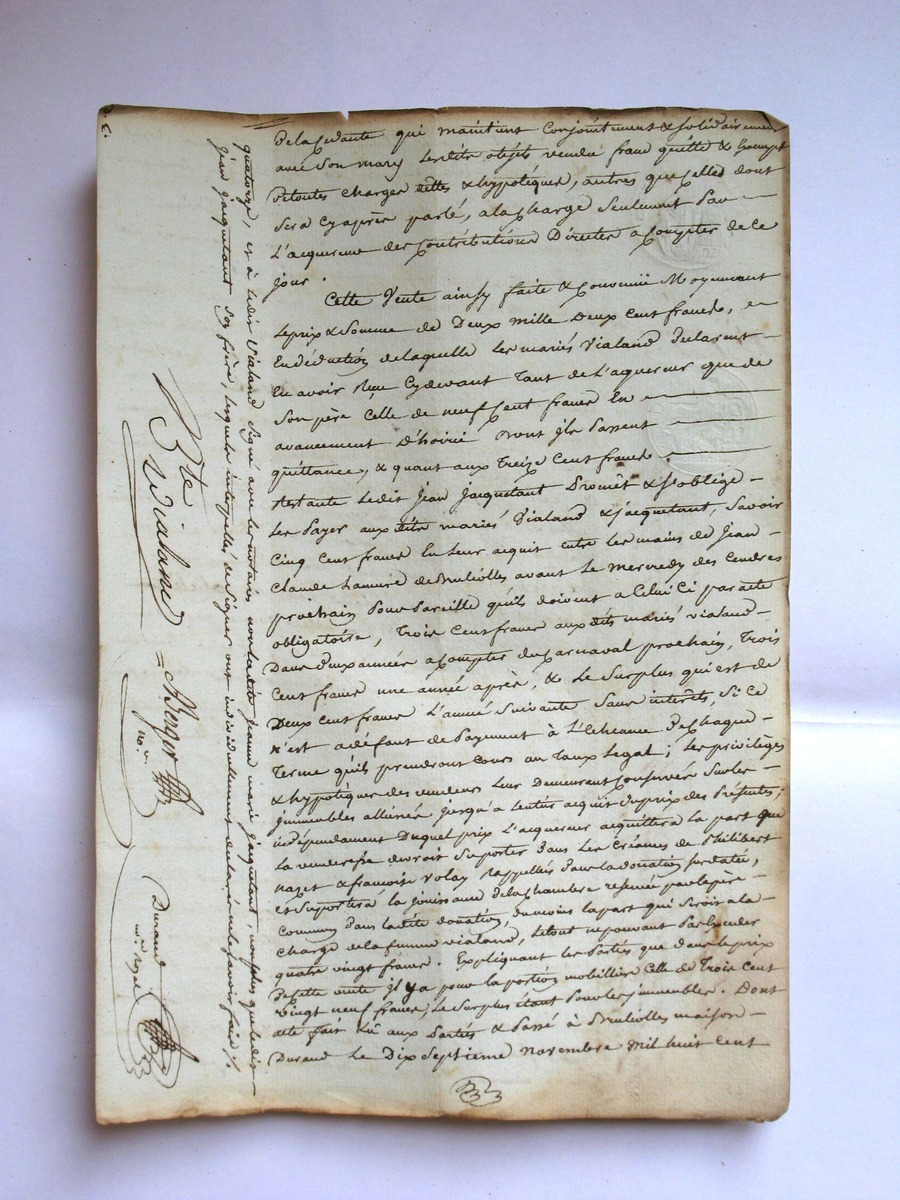 De la Cedante qui maintient Conjointement & solidairement
avec son mary lesdits objets vendu franc quitte & Exempt
De toutes charges dettes & hypotéques, autres que Celles dont
sera Cy après parlé, a la Charge Seulement Par
L'acquereur des Contributions Directes a Compter de Ce
jour.
Cette Vente ainsy faite & Convenüe Moyennant
Le prix & Somme de Deux mille Deux Cent francs,
En déduction de laquelle les mariés Vialand Declarent
En avoir Reçu Cy devant Tant de L'aquereur que de
Son père Celle de neuf Cent francs En
avancement D'hoirie Dont ils Passent
quittance, & quant aux Treize Cent francs
Restants Ledit Jean Jacquetant Promet & s'oblige
Les Payer aux dits mariés Vialand & jacquetant, Savoir
Cinq Cent francs En Leur acquit entre les mains de Jean
Claude Lamure de Brulioles avant Le Mercredy des Cendres
prochain Pour Pareille qu'ils doivent a Celui Ci par acte
obligatoire, Trois Cent francs aux dits mariés vialand
Dans Deux années a Compter du Carnaval prochain, Trois
Cent francs une année après, & Le Surplus qui est de
Deux cent francs L'année Suivante Sans interêts, Si Ce
n'est a défaut de Payement à L'Echeance De Chaque
Terme qu'ils prendront Cours au Taux Legal; Les privilèges
& hypotèques des vendeurs Leur Demeurant Conservés Sur les
immeubles alliénés jusqu'a L'entier acquit du prix des Présentes;
indépendament Duquel prix L'acquereur acquittera la part que
La venderesse devroit Suporter Dans Les Créances de Philibert
nazet & francoise volay rappellés Dans la donation Sus datée,
et Suportera la jouissance de la Chambre reservée par le père
Commun Dans la dite donation, du moins la part qui Seroit a la
Charge de la femme vialand, le tout ne pouvant Pas Exceder
quatre vingt francs. Expliquant les Parties que dans le prix
De Cette vente il y a pour la portion mobilliere Celle de Trois Cent
vingt neuf francs, Le Surplus étant Pour les immeubles. Dont
acte fait Lû aux Parties & Passé à Brulioles maison
Durand Le Dix Septieme novembre mil huit Cent
quatorze, et à Ledit Vialand Signé avec les notaires non ladite Jeanne marie jacquetant, non plus que ledit
Jean jacquetant Son frère, Lesquels interpellés de Signer ont individuellement declaré ne le Savoir faire /.
Bte vialand
Berger
no.re
Durand
no.re royal